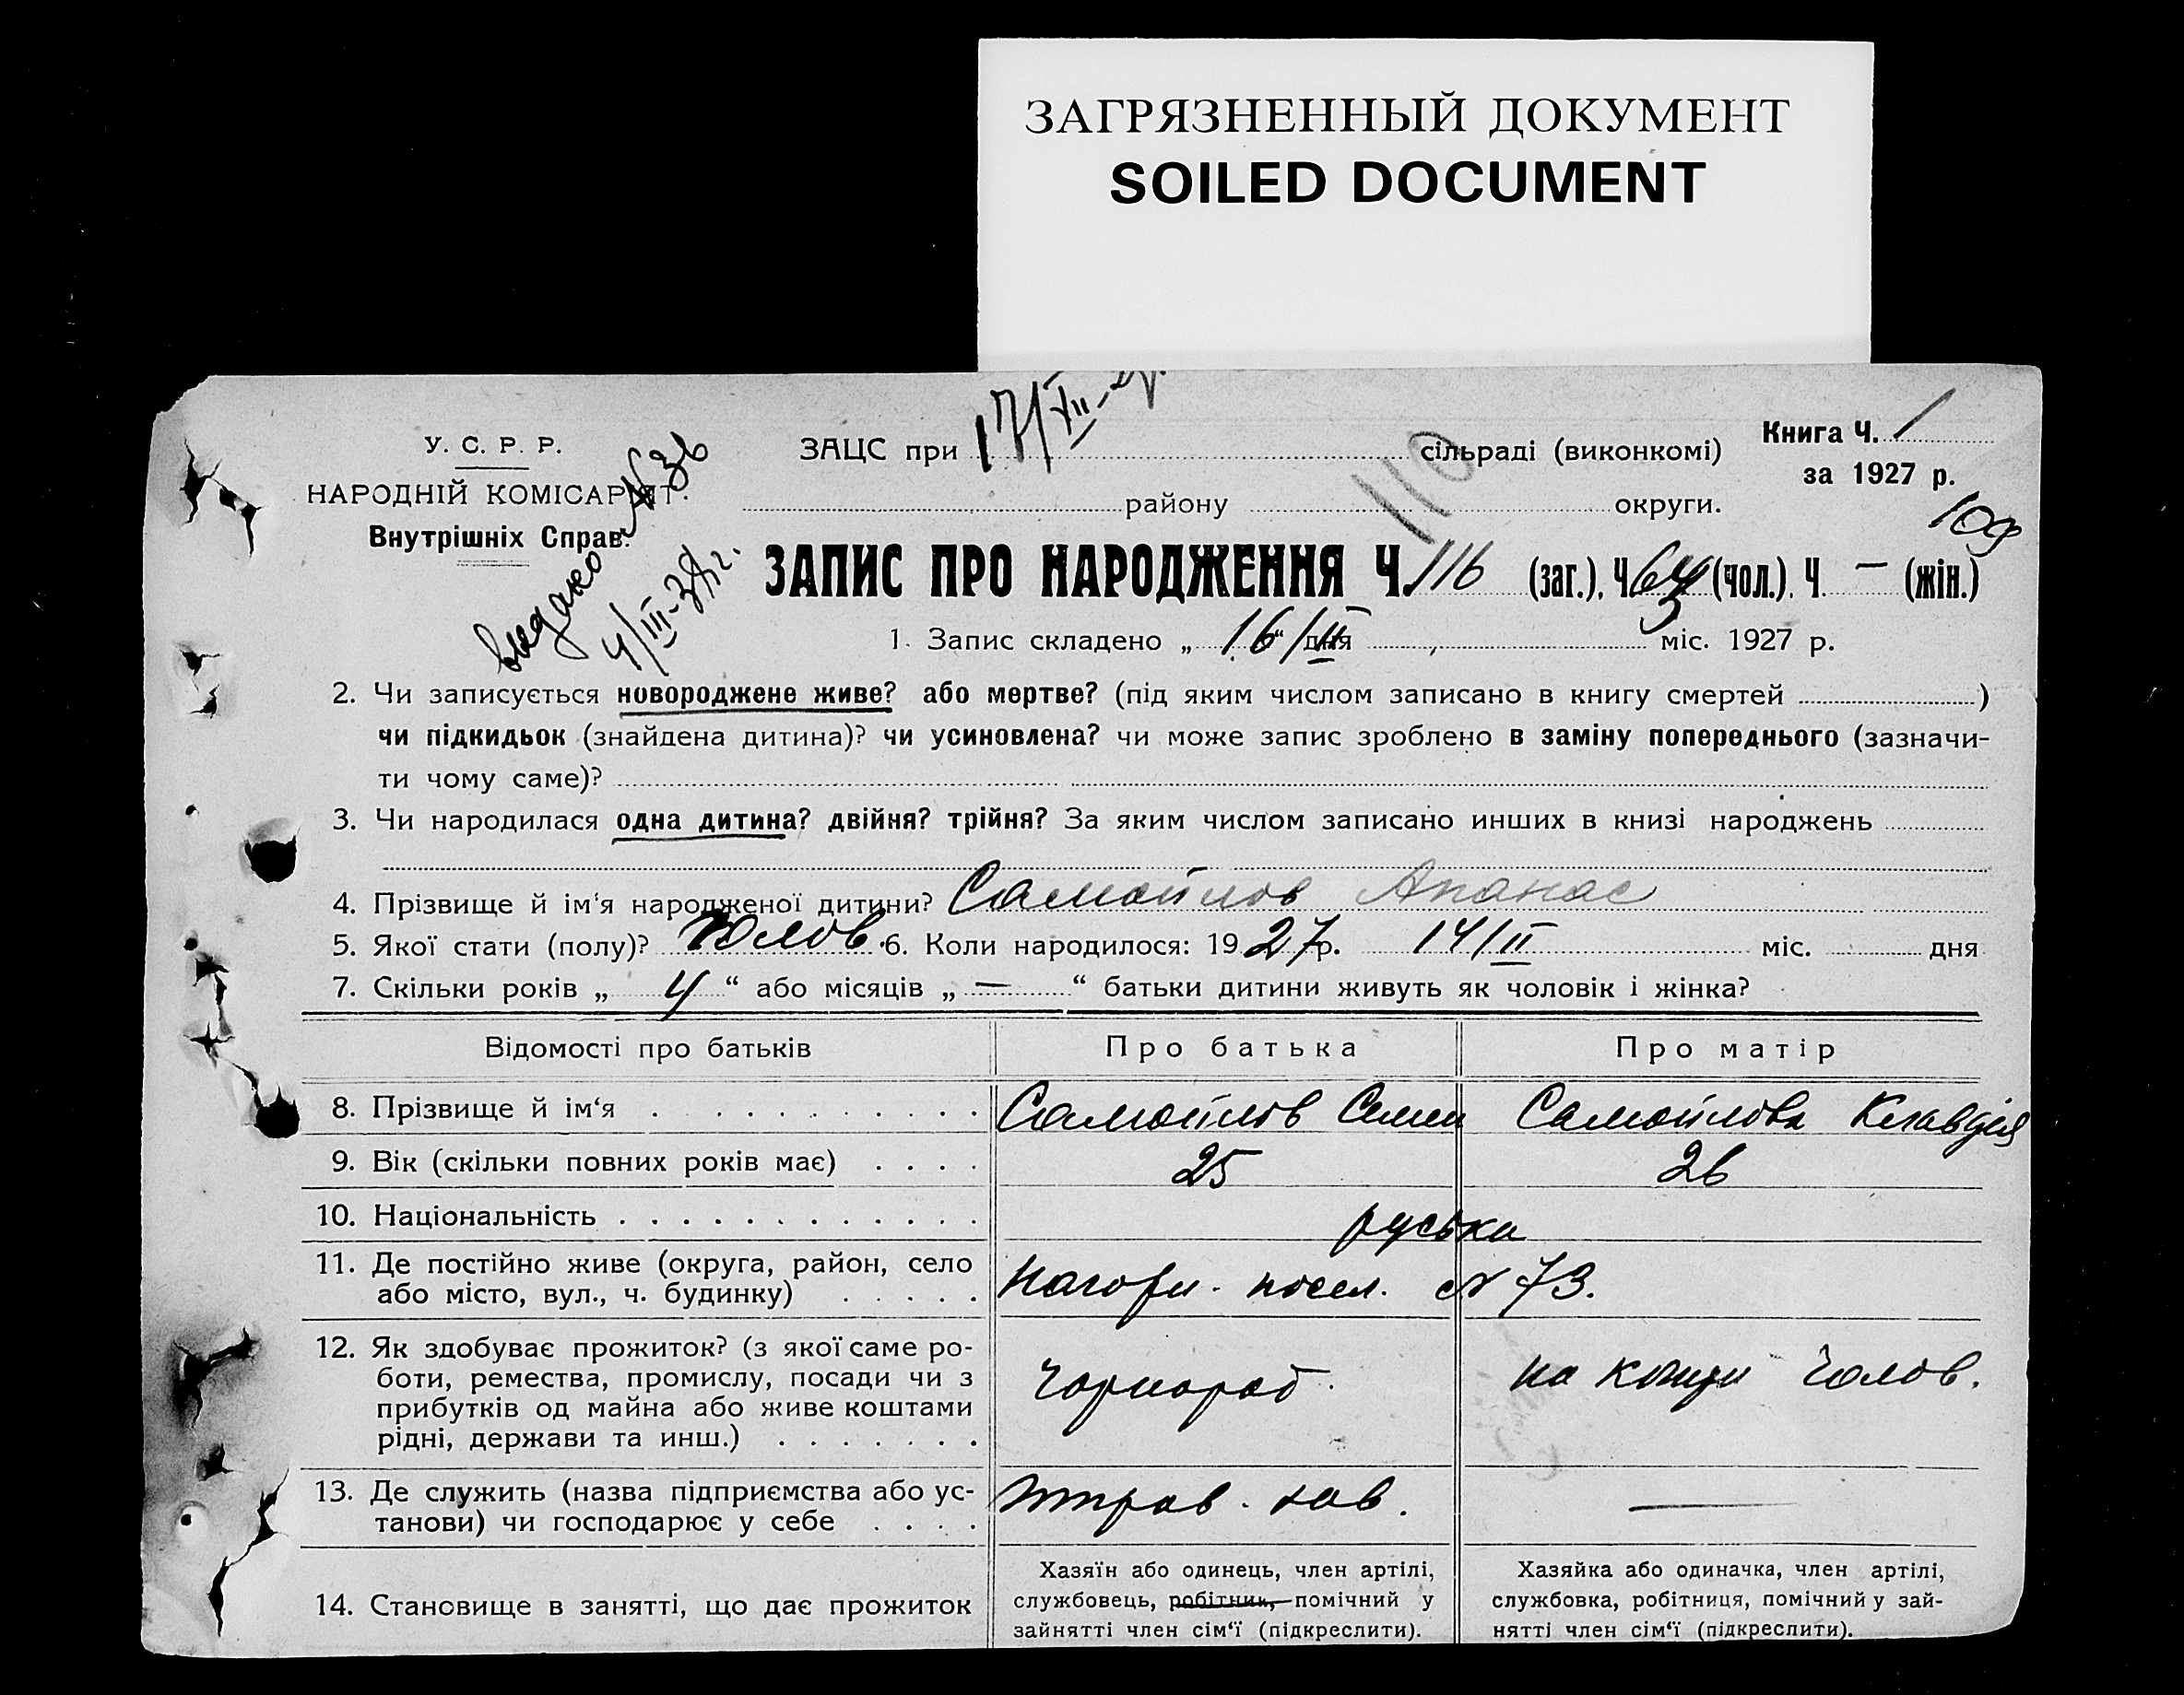 ЗАГРЯЗНЕННЫЙ ДОКУМЕНТ
SOILED DOCUMENT
У. С. Р. Р.
НАРОДНІЙ КОМІСАРІЯТ
Внутрішніх Справ.
видано № 36
ЗАЦС при 17/XII сільраді (виконкомі)
Книга Ч. 1
за 1927 р.
району округи.
110
109
ЗАПИС ПРО НАРОДЖЕННЯ Ч. 116 (заг.), Ч. 64 (чол.). Ч. — (жін.)
1. Запис складено „ 16/II “ дня міс. 1927 р.
2. Чи записується новороджене живе? або мертве? (під яким числом записано в книгу смертей )
чи підкидьок (знайдена дитина)? чи усиновлена? чи може запис зроблено в заміну попереднього (зазначи-
ти чому саме)?
3. Чи народилася одна дитина? двійня? трійня? За яким числом записано инших в книзі народжень
4. Прізвище й ім‘я народженої дитини? Самойлов Апанас
5. Якої стати (полу)? Чолов. 6. Коли народилося: 1927 р. 14/II міс. дня
7. Скільки років „ 4 “ або місяців „ — “ батьки дитини живуть як чоловік і жінка?
Відомості про батьків Про батька Про матір
8. Прізвище й ім‘я Самойлов Семен Самойлова Клавдія
9. Вік (скільки повних років має) 25 26
10. Національність руська
11. Де постійно живе (округа, район, село
або місто, вул., ч. будинку) Нагорн. посел. № 73.
12. Як здобуває прожиток? (з якої саме ро-
боти, ремества, промислу, посади чи з
прибутків од майна або живе коштами
рідні, держави та инш.)
чорнороб. на кошти чолов.
13. Де служить (назва підприємства або ус-
танови) чи господарює у себе
14. Становище в занятті, що дає прожиток
Хазяїн або одинець, член артілі,
службовець, робітник, помічний у
зайнятті член сім‘ї (підкреслити).
Хазяйка або одиначка, член артілі,
службовка, робітниця, помічний у зай-
нятті член сім‘ї (підкреслити).